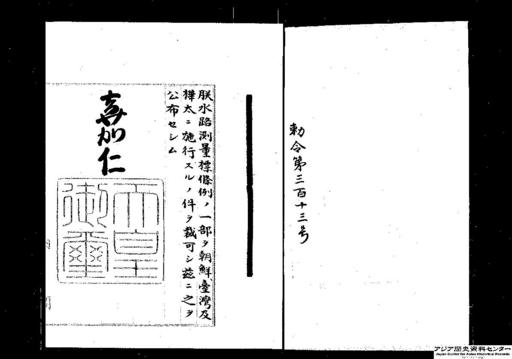 勅令第三百十三号
朕水路測量標條例ノ一部ヲ朝鮮臺灣及
樺太ニ施行スルノ件ヲ裁可シ茲ニ之ヲ
公布セシム
嘉仁
天皇
御璽
アジア歴史資料センター
Japan Center for Asian Historical Records